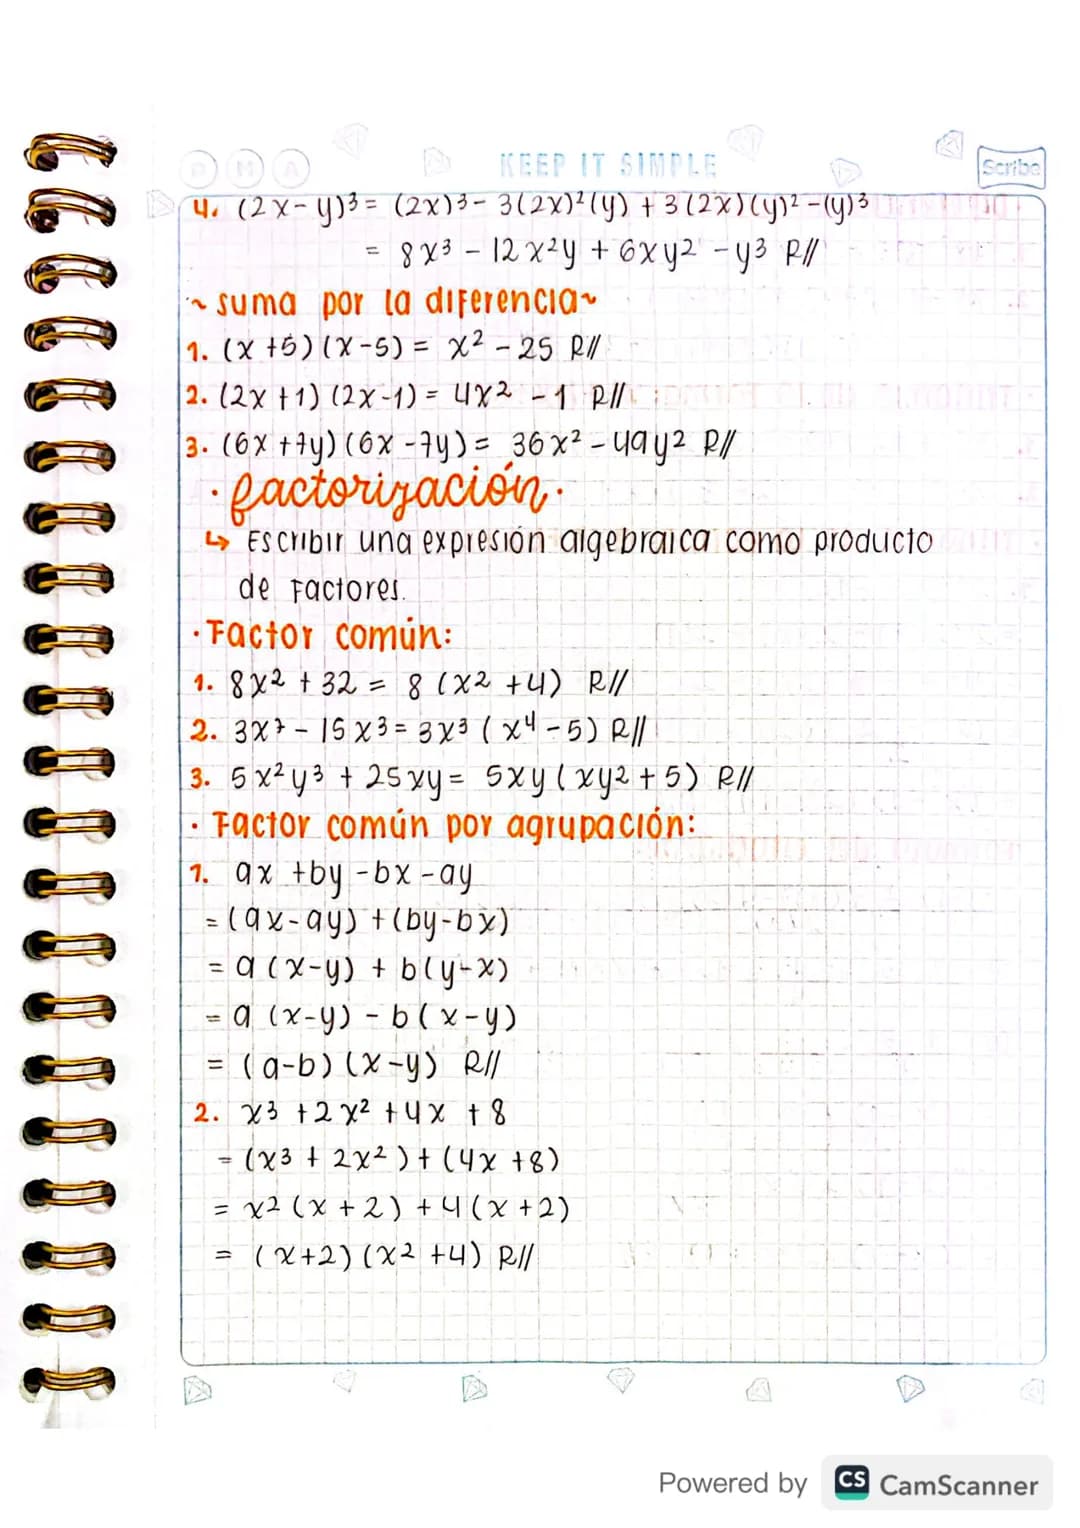 P M A KEEP IT SIMPLE Scribe
4. (2x-y)³ = (2x)³ - 3(2x)²(y) + 3(2x)(y)² - (y)³
= 8x³ - 12x²y + 6xy² - y³ R//
~ suma por la diferencia ~
1. (x+5)(x-5) = x² - 25 R//
2. (2x+1)(2x-1) = 4x² - 1 R//
3. (6x+7y)(6x-7y) = 36x² - 49y² R//
· factorización ·
↳ Escribir una expresión algebraica como producto
de Factores.
· Factor común:
1. 8x² + 32 = 8(x² + 4) R//
2. 3x⁷ - 15x³ = 3x³(x⁴ - 5) R//
3. 5x²y³ + 25xy = 5xy(xy² + 5) R//
· Factor común por agrupación:
1. ax + by - bx - ay
= (ax - ay) + (by - bx)
= a(x-y) + b(y-x)
= a(x-y) - b(x-y)
= (a-b)(x-y) R//
2. x³ + 2x² + 4x + 8
= (x³ + 2x²) + (4x + 8)
= x²(x+2) + 4(x+2)
= (x+2)(x² + 4) R//
Powered by CS CamScanner